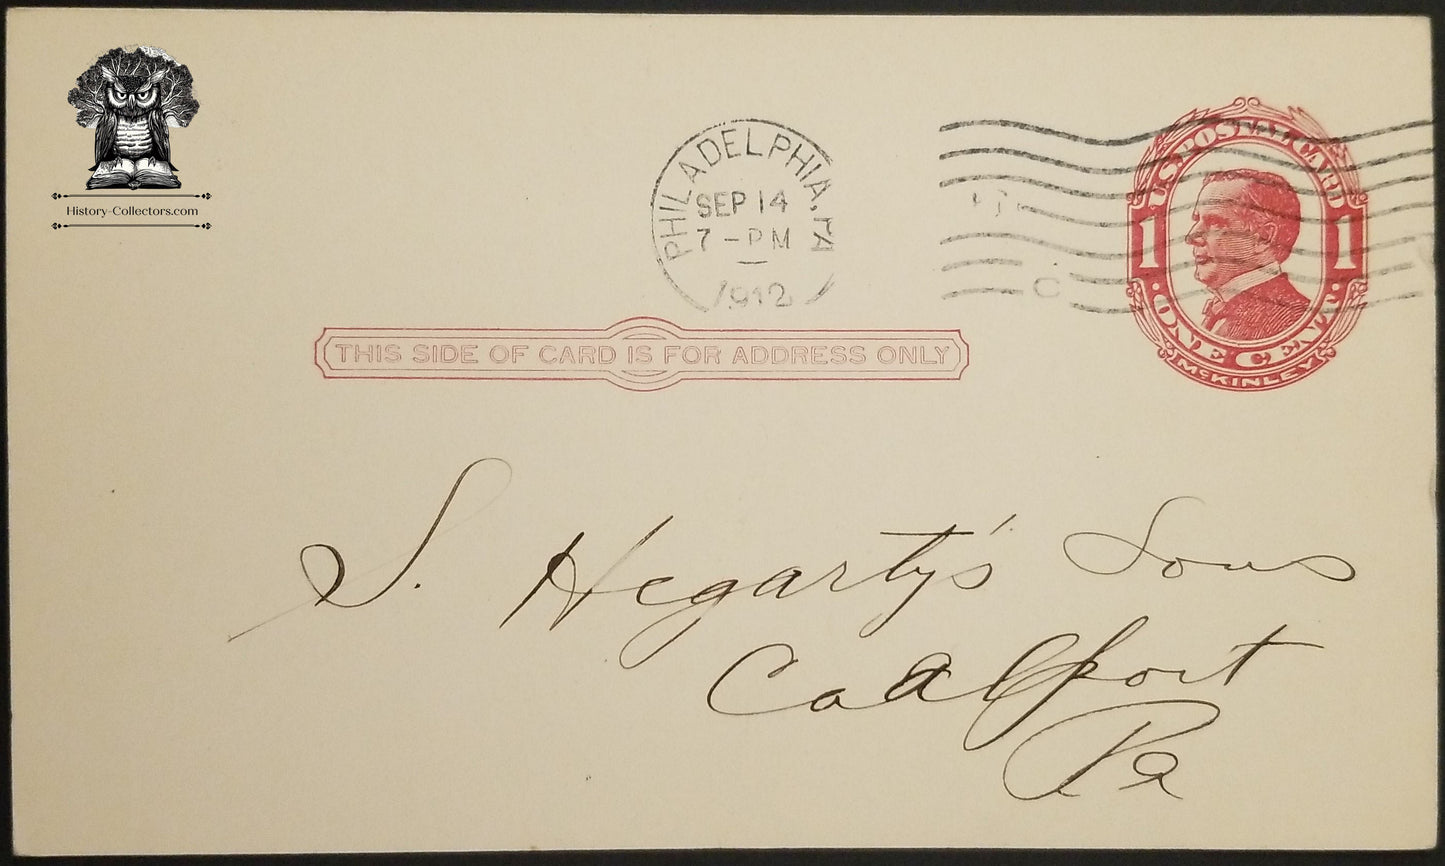 History-Collectors.com
PHILADELPHIA, PA
SEP 14
7-PM
1912
U.S. POSTAL CARD
1 1
ONE CENT
McKINLEY
THIS SIDE OF CARD IS FOR ADDRESS ONLY
S. Hegarty's Sons
Coalport
Pa